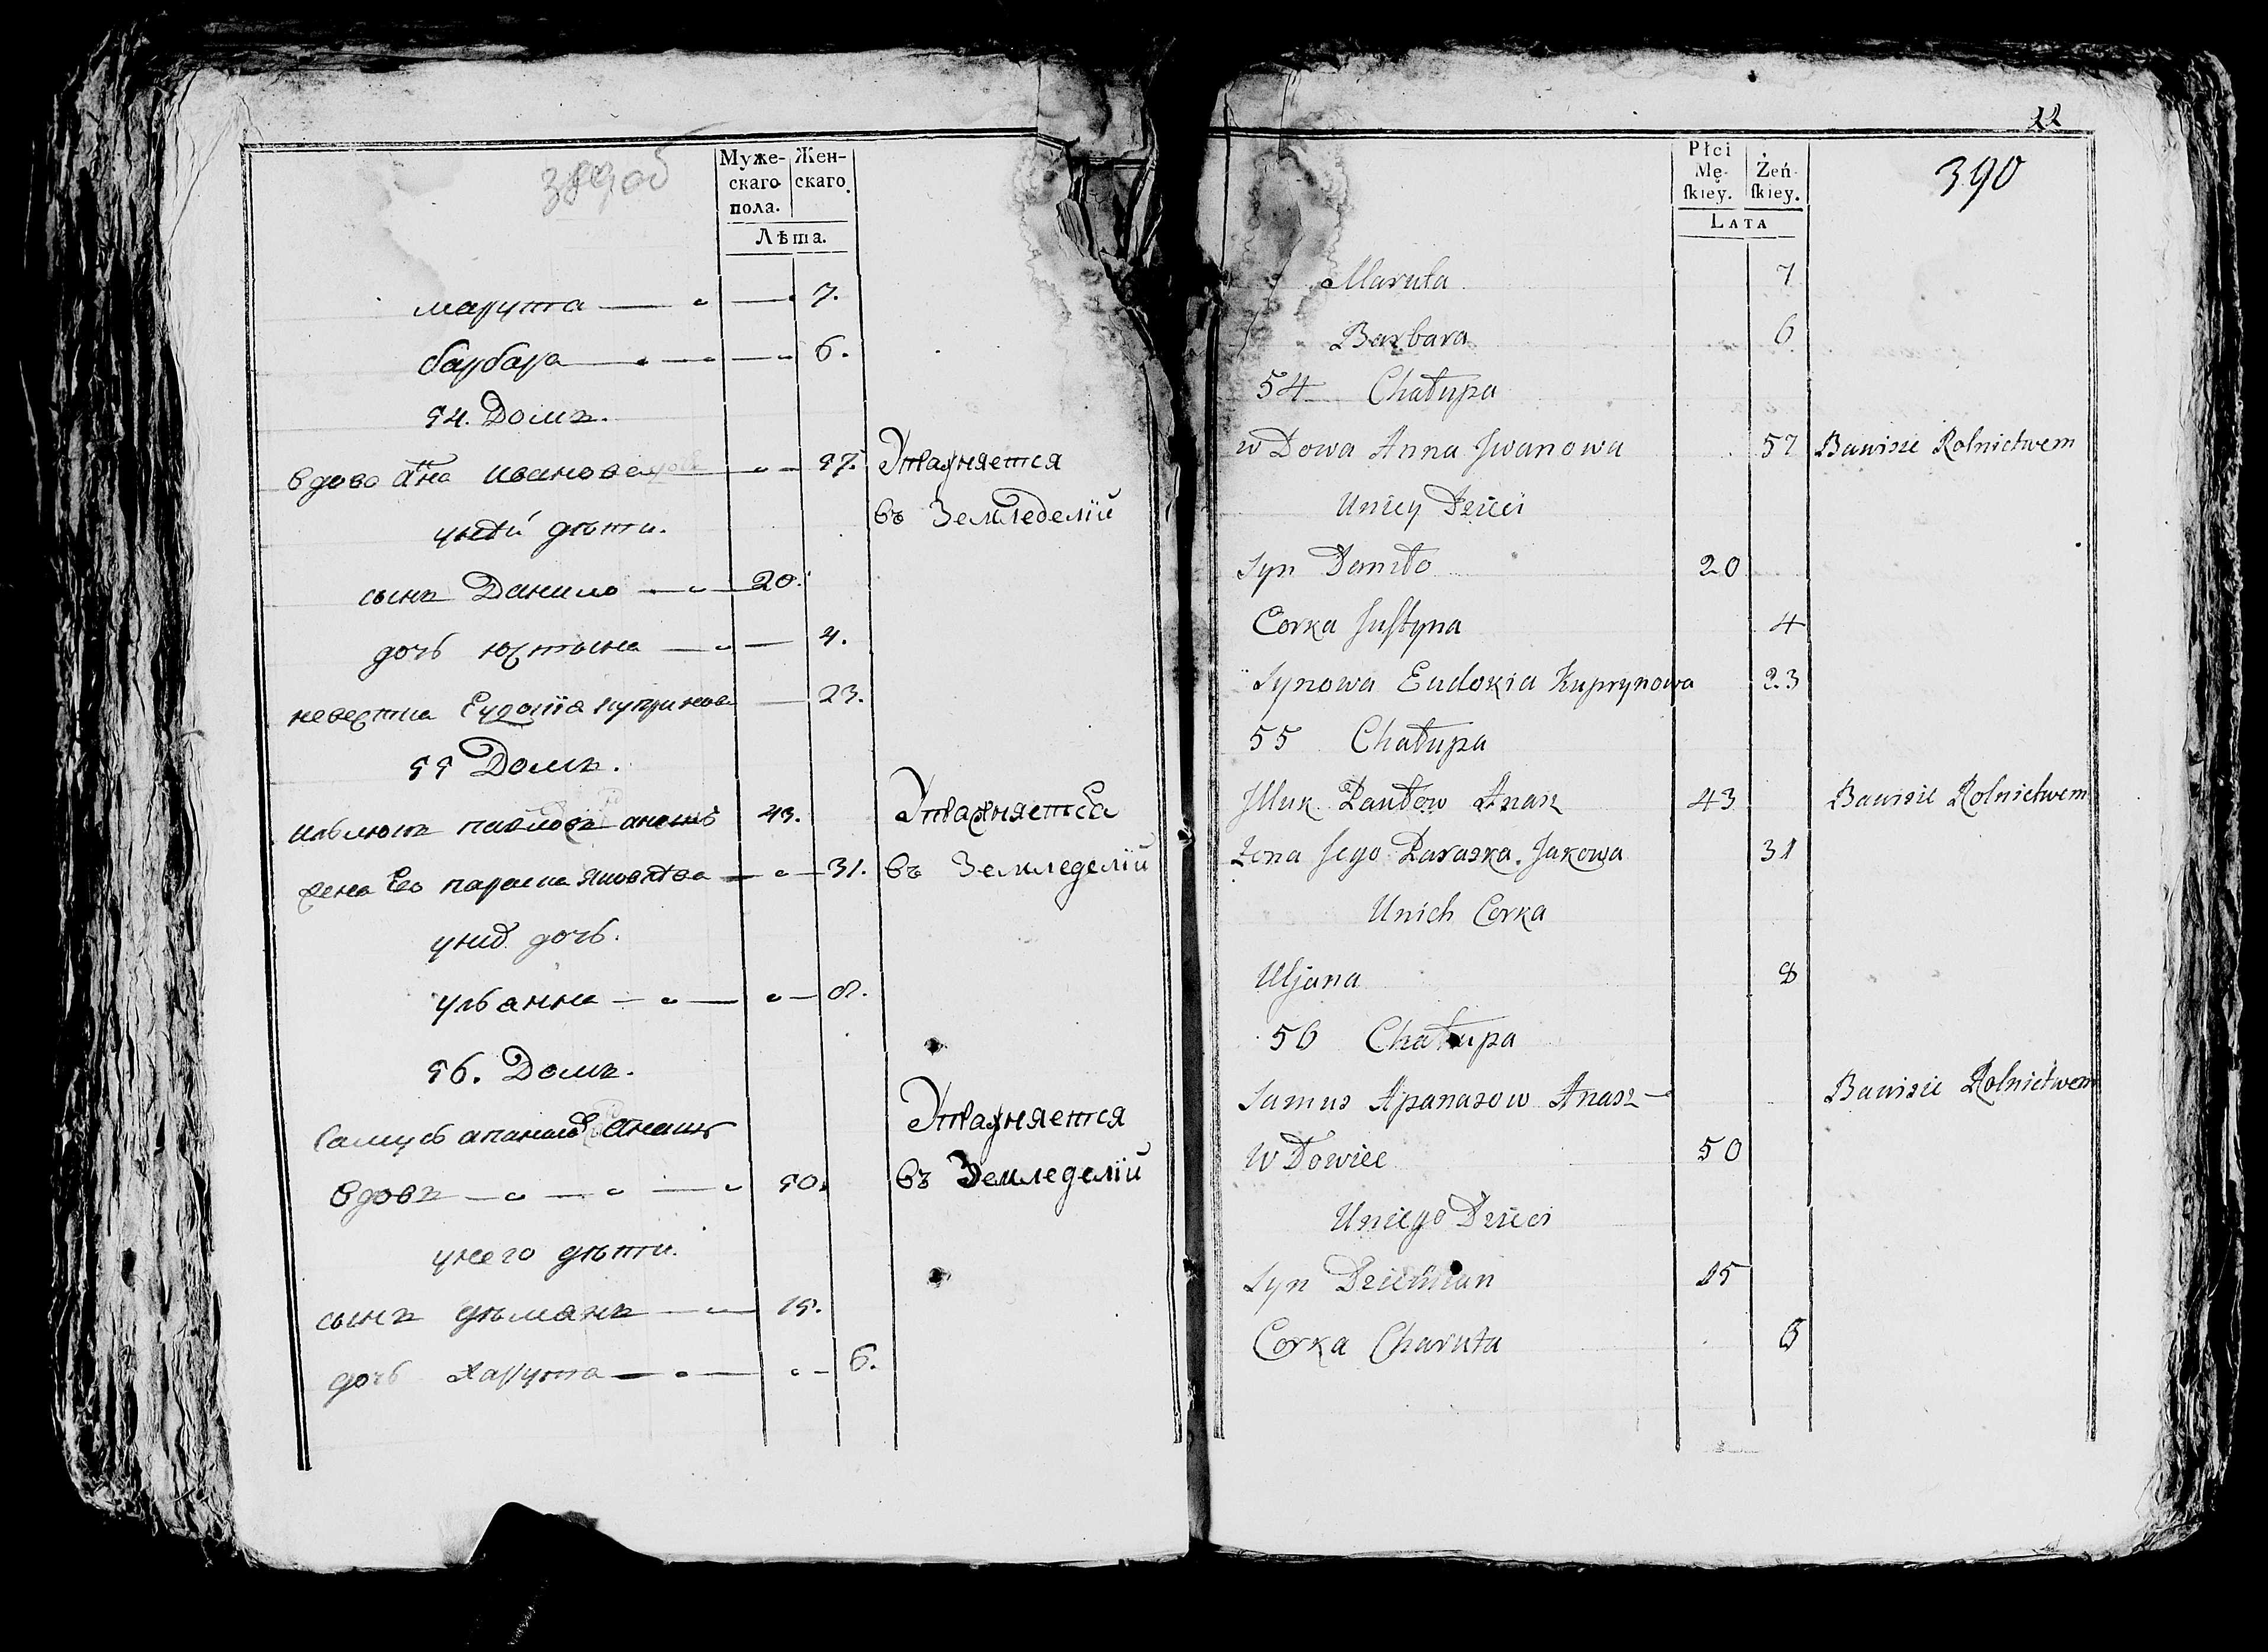 389 об
Муже-
скаго
пола.
Жен-
скаго.
Лѣта.
марута 7.
барбара 6.
54. Домъ.
вдова анна иванова 57. Упражняется
унеи дѣти. въ Земледелїй
сынъ Данило 20.
дочъ юстына 4.
невестка Еудокїа купринова 23.
55 Домъ.
ильюкъ павловъ анашъ 43. Упражняетса
жена Его параска яковлева 31. въ Земледелїй
уних дочъ.
ульянна 8.
56. Домъ.
Самусь апанасовъ анашъ Упражняется
вдовъ 50. въ Земледелїй
унего дѣти.
сынъ дѣмянъ 15.
дочъ харута 6.
22
Płci
Mę-
ſkiey.
Żeń-
ſkiey.
LATA
390
Maruta 7
Barbara 6
54 Chałupa
w Dowa Anna Jwanowa 57 Bawisie Rolnictwem
Uniey Dzieci
Syn Daniło 20
Corka Juſtyna 4
Synowa Eudokia Kuprynowa 23
55 Chałupa
Jlluk Pawłow Anasz 43 Bawisie Rolnictwem
Zona Jego Paraska Jakowa 31
Unich Corka
Uljana 8
56 Chałupa
Samus Apanasow Anasz Bawisie Rolnictwem
w Dowiec 50
Uniego Dzieci
Syn Dziemian 15
Corka Charuta 6